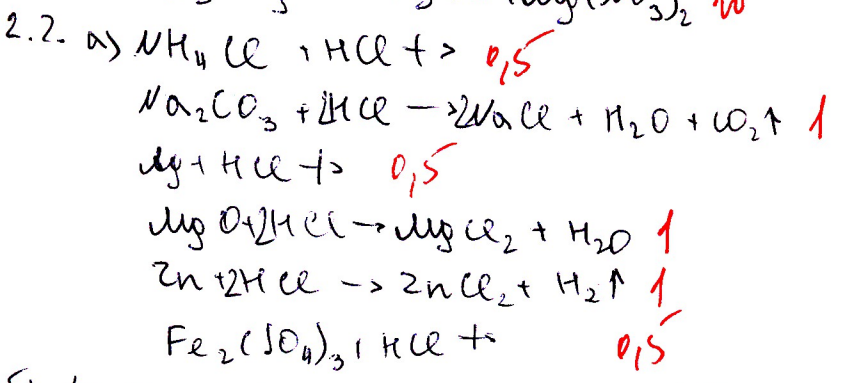 3)₂
2.2. а) NH₄Cl + HCl ↛ 0,5
Na₂CO₃ + 2HCl → 2NaCl + H₂O + CO₂↑ 1
Ag + HCl ↛ 0,5
MgO + 2HCl → MgCl₂ + H₂O 1
Zn + 2HCl → ZnCl₂ + H₂↑ 1
Fe₂(SO₄)₃ + HCl ↛ 0,5